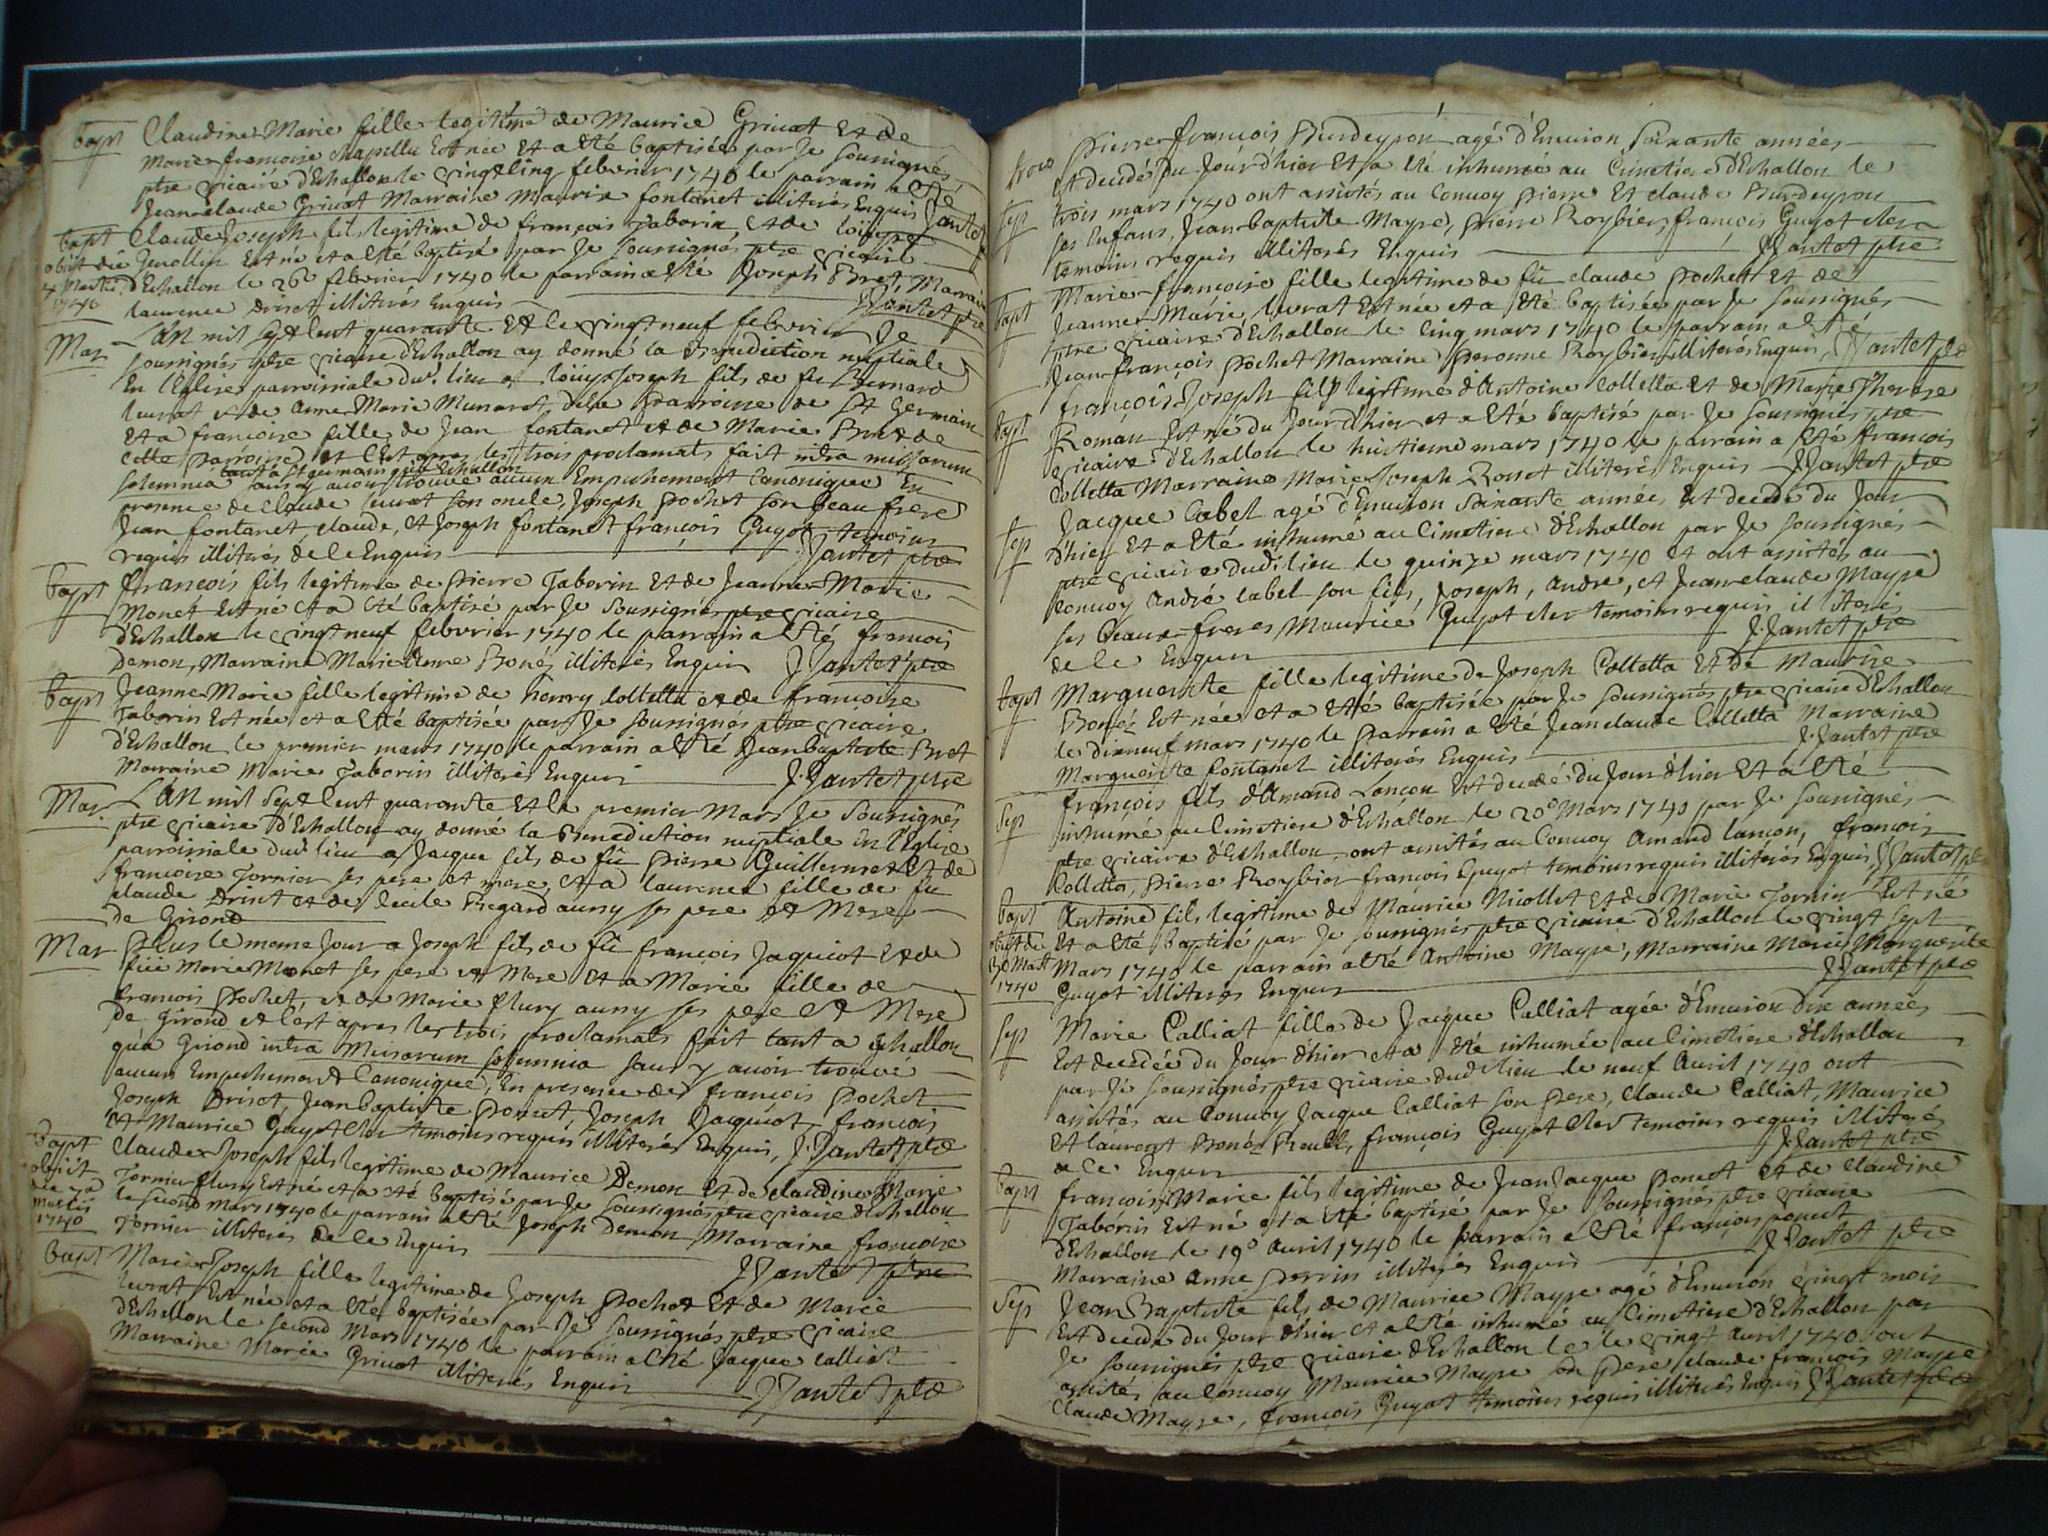 bapt Claudine Marie fille legitime de Maurice Grivat Et de
Marie francoise Chapellu Est née Et a Eté baptisée par Je soussignés
ptre vicaire d'Echallon le vingt cinq febvrier 1740 le parrain a Eté
Jean claude Grivat Marraine Maurise fontanet illiterés Enquis JJantet
bapt Claude Joseph fils legitime de francois Taborin, et de louise
obiit die Jmollin Est né et a Eté baptisé par Je soussignés ptre vicaire
4 Martii d'Echallon le 26e febvrier 1740 le parrain a Eté Joseph Bret, Marraine
1740 laurence Driset illiterés Enquis JJantet ptre
Mar L'An mil sept Cent quarante Et le vingt neuf febvrier Je
soussignés ptre vicaire d'Echallon ay donné la Benediction nuptiale
En l'Eglise parroissiale dud. lieu a louys Joseph fils de fu Bernard
livrat et de Anne Marie Muneret de la Parroisse de St Germain
Et a francoise fille de Jean fontanet et de Marie Bret de
cette parroisse et C'est apres les trois proclamats fait intra missarum
tant a St germain qu'a Echallon
solemnia sans y avoir trouvé aucun Empechement Canonique En
presence de claude livrat son oncle, Joseph Pochet son beau frere
Jean fontanet claude, et Joseph fontanet françois Guyot temoins
requis illiterés de ce Enquis JJantet ptre
bapt francois fils legitime de Pierre Taborin Et de Jeanne Marie
Monet Est né Et a Eté baptisé par Je soussignés ptre vicaire
d'Echallon le vingt neuf febvrier 1740 le parrain a Eté francois
Demon, Marraine Marie Anne Bonéz illiterés Enquis JJantet ptre
bapt Jeanne Marie fille legitime de henry Colletta et de francoise
Taborin Est née et a Eté baptisée par Je soussignés ptre vicaire
d'Echallon le premier mars 1740 le parrain a Eté Jean baptiste Bret
Marraine Marie Taborin illiterés Enquis J. Jantet ptre
Mar L'An mil sept Cent quarante Et le premier Mars Je soussignés
ptre vicaire d'Echallon ay donné la Benediction nuptiale En l'Eglise
parroissiale dud. lieu a Jacque fils de fu Pierre Guillermet Et de
francoise Tornier ses pere et mere, Et a laurence fille de fu
claude Driset et de Cecile Regard aussy ses pere et Mere
de Girond
Mar Plus le meme Jour a Joseph fils de fu francois Jaquiot Et de
fue Marie Monet ses pere et Mere Et a Marie fille de
francois Pochet, et de Marie flury aussy ses pere et Mere
De Girond et C'est apres les trois proclamats fait tant a Echallon
qu'a Girond intra Missarum solemnia sans y avoir trouvé
aucun Empechement Canonique, En presence de francois Pochet
Joseph Driset, Jean baptiste Poncet, Joseph Jacquiot, francois
et Maurice Guyot Cler temoins requis illiterés Enquis, J. Jantet ptre
bapt Claude Joseph fils legitime de Maurice Demon Et de claudine Marie
obiit Tornier flury Est né et a eté baptisé par Je soussignés ptre vicaire d'Echallon
die 7a le second mars 1740 le parrain a Eté Joseph Demon Marraine francoise
Martii Tornier illiterés de ce Enquis
1740 JJantet ptre
bapt Marie Joseph fille legitime de Joseph Pochet Et de Marie
livrat Est née et a Eté baptisée par Je soussignés ptre vicaire
d'Echallon le second Mars 1740 le parrain a Eté Jacque Calliat
Marraine Marie Grivat illiterés Enquis JJantet ptre
Pierre francois Burdeyron agé d'Environ soixante années
Et decedé du Jourd'hier Et a Eté inhumé au Cimetiere d'Echallon le
Sep trois mars 1740 ont assistés au Convoy Pierre Et claude Burdeyron
ses Enfans, Jean baptiste Mayre, Pierre Roybier, françois Guyot cler
temoins requis illiterés Enquis JJantet ptre
bapt Marie francoise fille legitime de fu claude Pochet Et de
Jeanne Marie livrat Est née et a Eté baptisée par Je soussignés
ptre vicaire d'Echallon le Cinq mars 1740 le parrain a Eté
Jean françois Pochet Marraine Peronne Roybier illiterés Enquis, JJantet ptre
bapt françois Joseph fils legitime d'Antoine Colletta Et de Marie Therese
Roman Est né du Jourd'hier et a Eté baptisé par Je soussignés ptre
vicaire d'Echallon le huitieme mars 1740 le parrain a Eté francois
Colletta Marraine Marie Joseph Rosset illiterés Enquis JJantet ptre
Sep Jacque Cabet agé d'Environ soixante années Est decedé du Jour
d'hier Et a Eté inhumé au Cimetiere d'Echallon par Je soussignés
ptre vicaire dudit lieu le quinze mars 1740 et ont assistés au
Convoy André Cabet son fils, Joseph, André, et Jean claude Mayre
ses beaux freres Maurice Guyot cler temoins requis illiterés
de ce Enquis J. Jantet ptre
bapt Marguerite fille legitime de Joseph Colletta Et de Maurise
Bonéz Est née et a Eté baptisée par Je soussignés ptre vicaire d'Echallon
le dixneuf mars 1740 le Parrain a Eté Jean claude Colletta Marraine
Marguerite fontanet illiterés Enquis J. Jantet ptre
Sep françois fils d'Amand Lançon Est decedé du Jour d'hier Et a Eté
inhumé au Cimetiere d'Echallon le 20e Mars 1740 par Je soussignés
ptre vicaire d'Echallon ont assistés au Convoy Amand lançon, francois
Colletta, Pierre Roybier françois Guyot temoins requis illiterés Enquis, JJantet ptre
bapt Antoine fils legitime de Maurice Nicollet Et de Marie Tornier Est né
obiit die Et a Eté baptisé par Je soussignés ptre vicaire d'Echallon le vingt sept
30 Mart Mars 1740 le parrain a Eté Antoine Mayre, Marraine Marie Marguerite
1740 Guyot illiterés Enquis JJantet ptre
Sep Marie Calliat fille de Jacque Calliat agée d'Environ dix années
Est decedée du Jour d'hier et a Eté inhumée au Cimetiere d'Echallon
par Je soussignés ptre vicaire dud. lieu le neuf Avril 1740 ont
assistés au Convoy Jacque Calliat son Pere, Claude Calliat, Maurice
Et laurent Bonéz, françois Guyot Cler temoins requis illiterés
de ce Enquis JJantet ptre
bapt francois Marie fils legitime de Jean Jacque Poncet Et de Claudine
Taborin Est né et a Eté baptisé par Je soussignés ptre vicaire
d'Echallon le 19e Avril 1740 le parrain a Eté françois poncet
Marraine Anne Perrin illiterés Enquis JJantet ptre
Sep Jean Baptiste fils de Maurice Mayre agé d'Environ vingt mois
Est decedé du Jour d'hier et a Eté inhumé au Cimetiere d'Echallon par
Je soussignés ptre vicaire d'Echallon le le vingt Avril 1740 ont
assistés au Convoy Maurice Mayre son Pere claude françois Mayre
Claude Mayre, françois Guyot temoins requis illiterés Enquis JJantet ptre